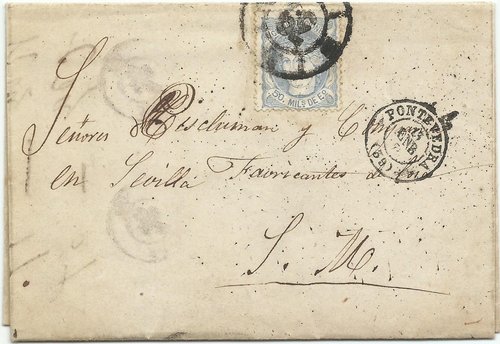 50 MILS. DE Eº
PONTEVEDRA
ENE
(39)
Señores Pescluman y C
en Sevilla Fabricantes de
S. M.